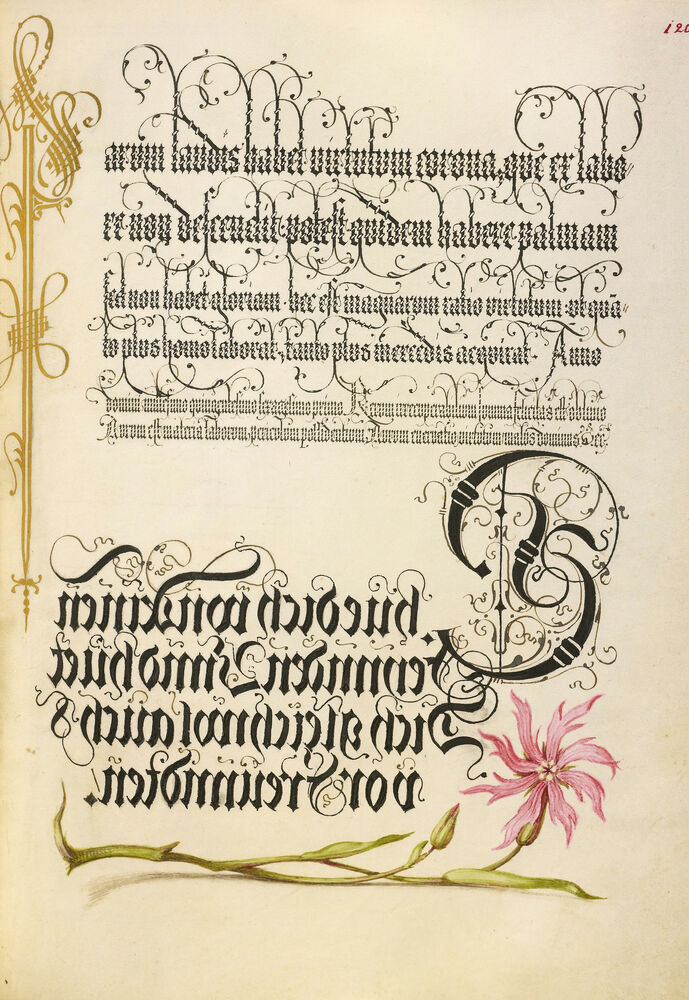 Parum laudis habet virtutum corona, que ex labo⸗
re non descendit: potest quidem habere palmam
sed non habet gloriam. hec est magnarum ratio virtutum. vt quā⸗
to plus homo laborat, tanto plus mercedis acquirat. Anno
domini millesimo quingentesimo sexagesimo primo. Rerum irrecuperabilium summa felicitas est oblivio
Aurum est materia laborum, periculum possidentium, Aurum enervatio virtutum malus dominus
Bhüe dich von deinen
Feinnden Vnnd hüet
Dich gleichwol auch
vor Freunndten.
120